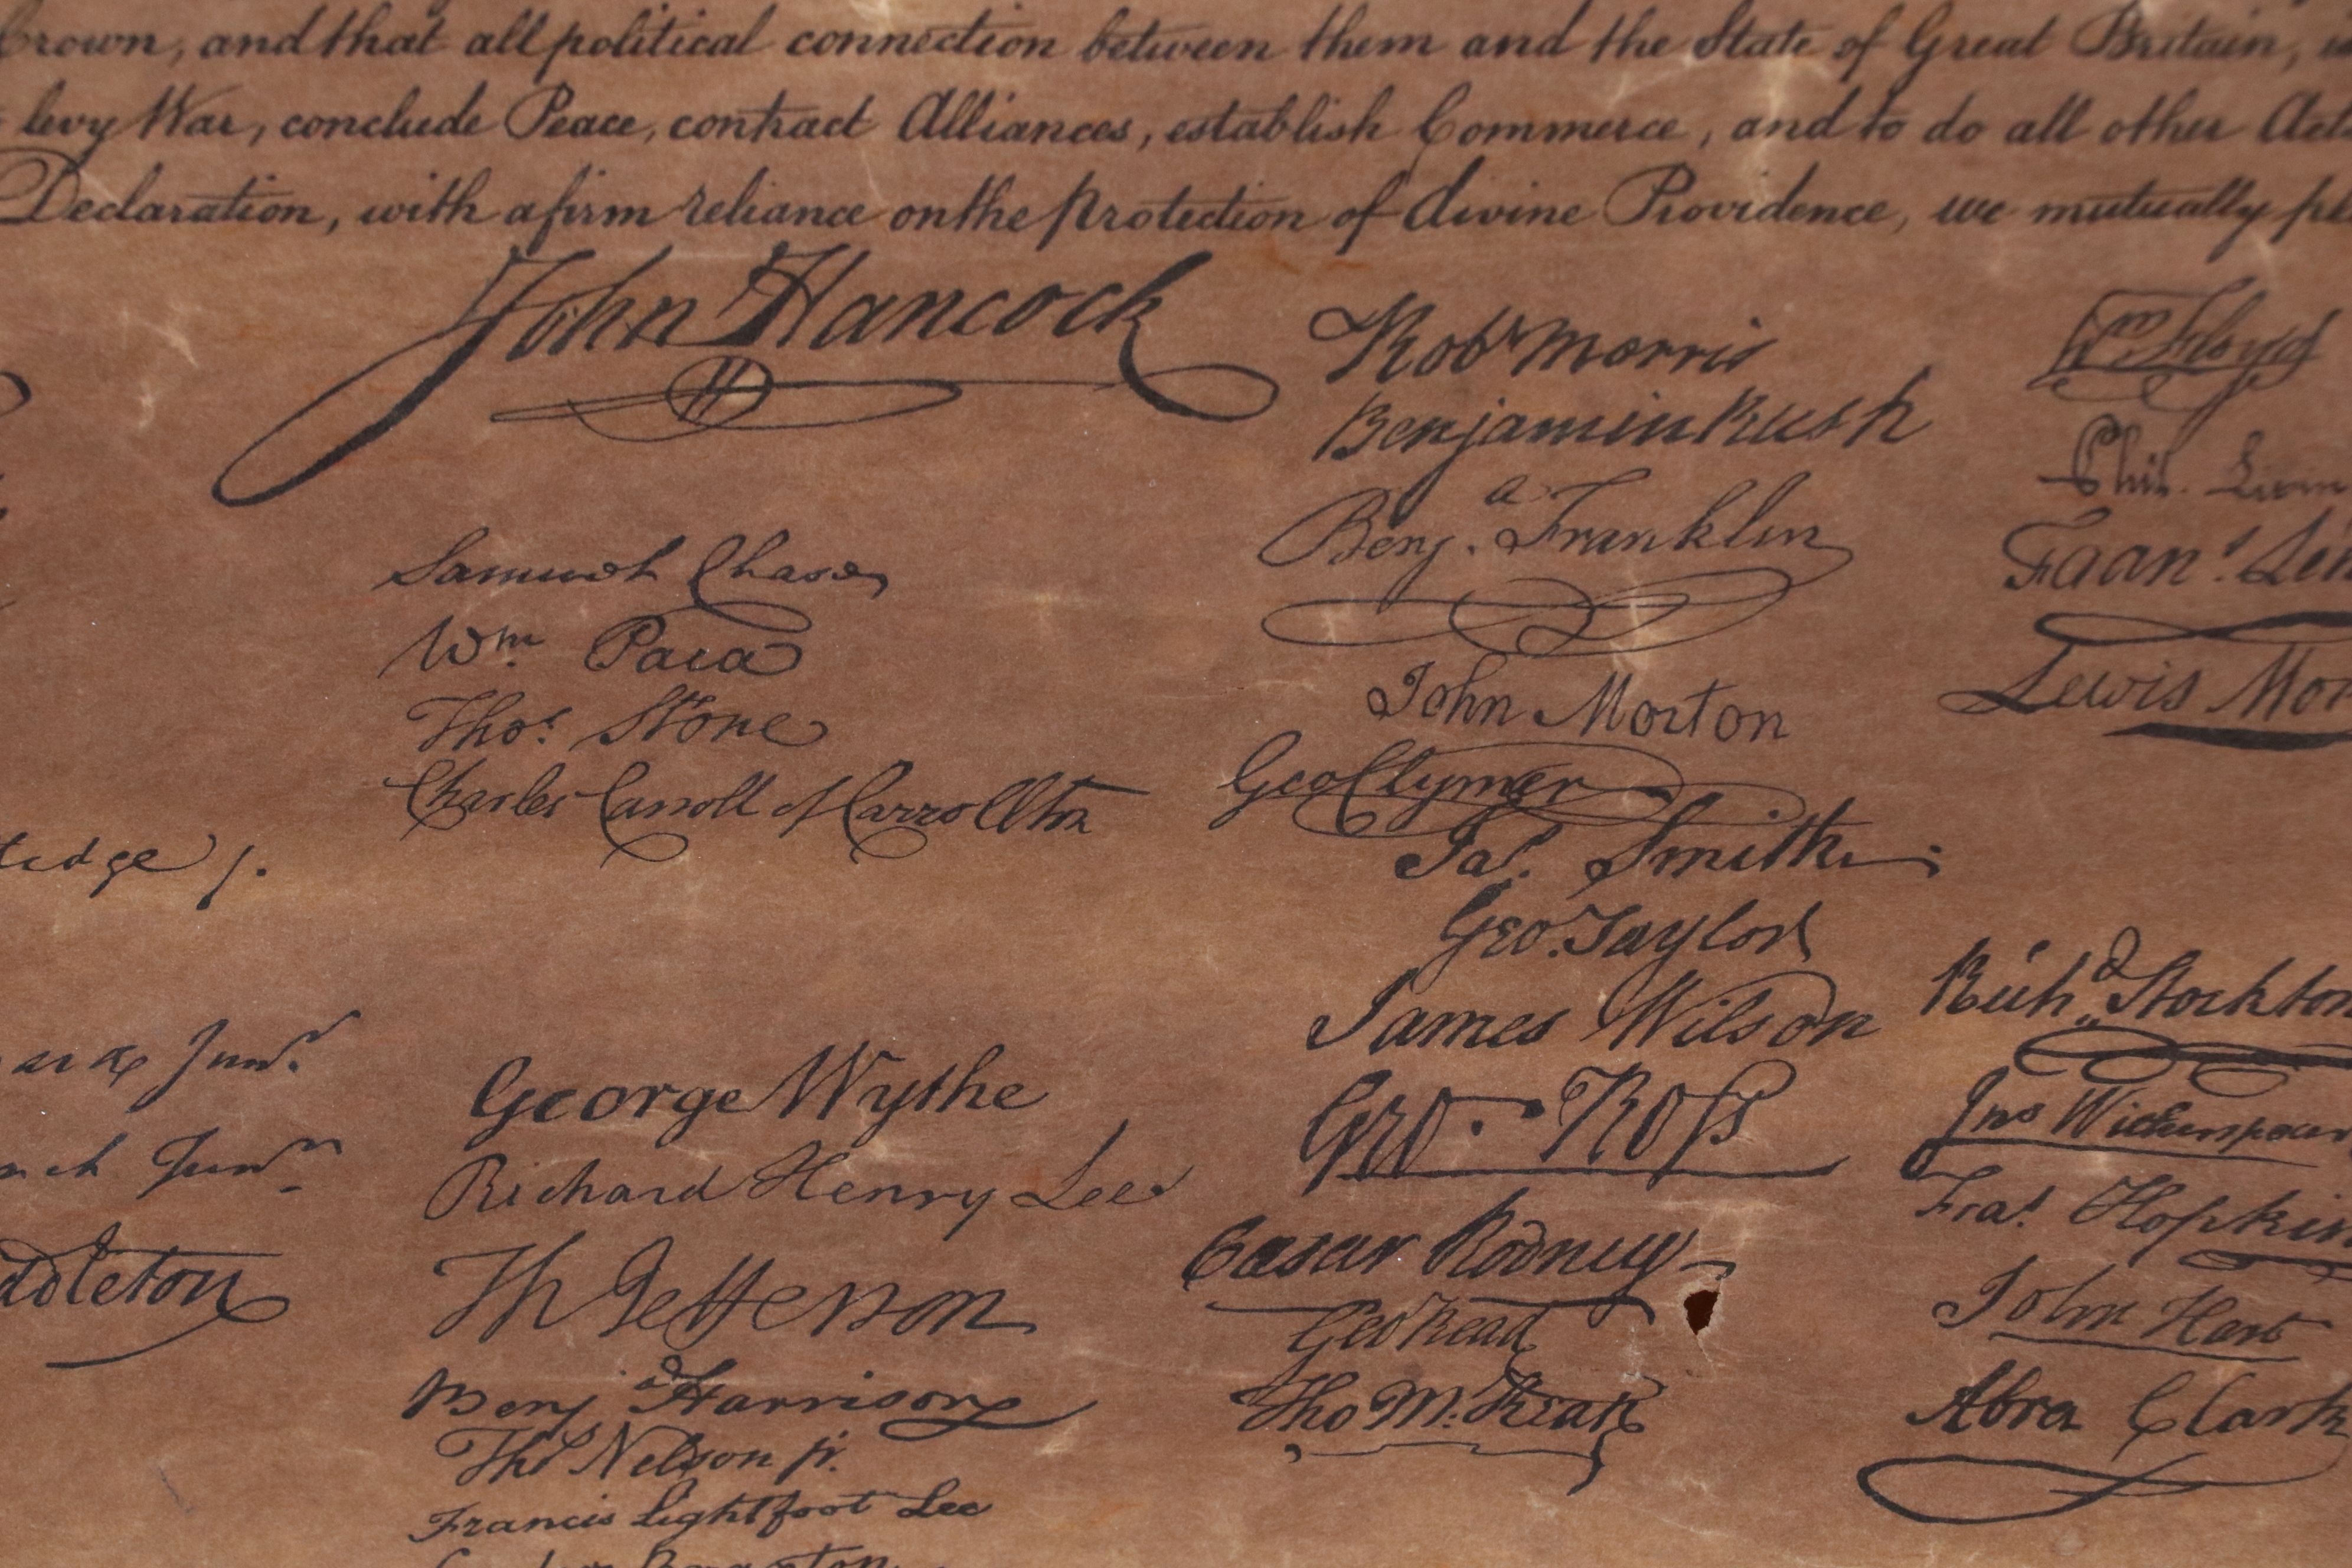 Crown, and that all political connection between them and the State of Great Britain,
levy War, conclude Peace, contract Alliances, establish Commerce, and to do all other Act
Declaration, with a firm reliance on the protection of divine Providence, we mutually pl
John Hancock
Samuel Chase
Wm. Paca
Thos. Stone
Charles Carroll of Carrollton
George Wythe
Richard Henry Lee
Th Jefferson
Benja Harrison
Thos Nelson jr.
Francis Lightfoot Lee
Robt Morris
Benjamin Rush
Benja. Franklin
John Morton
Geo Clymer
Jas. Smith.
Geo. Taylor
James Wilson
Geo. Ross
Caesar Rodney
Geo Read
Tho M:Kean
Wm. Floyd
Phil. Livin
Frans. Lew
Lewis Mor
Richd. Stockton
Jno Witherspoon
Fras. Hopkin
John Hart
Abra Clark
tledge j.
Junr.
nch Junr.
ddleton